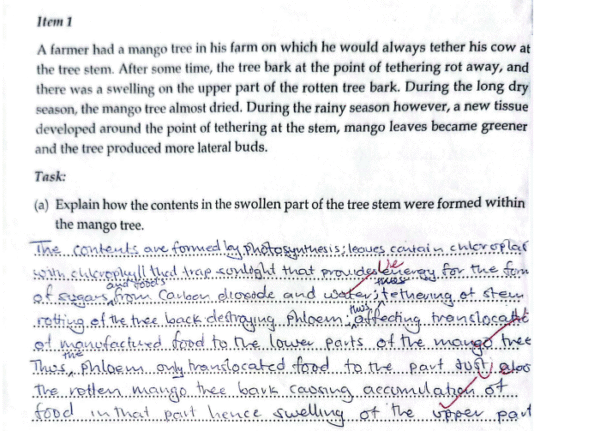 Item 1
A farmer had a mango tree in his farm on which he would always tether his cow at
the tree stem. After some time, the tree bark at the point of tethering rot away, and
there was a swelling on the upper part of the rotten tree bark. During the long dry
season, the mango tree almost dried. During the rainy season however, a new tissue
developed around the point of tethering at the stem, mango leaves became greener
and the tree produced more lateral buds.
Task:
(a) Explain how the contents in the swollen part of the tree stem were formed within
the mango tree.
The contents are formed by photosynthesis; leaves contain chloroplas
with chlorophyll that trap sunlight that provides energy for the form
of sugars and foods from Carbon dioxide and water; tethering at stem
rotting of the tree back destroying phloem; thus affecting translocati
of manufactured food to the lower parts of the mango tree
Thus, the phloem only translocated food to the part just
The rotten mango tree bark causing accumulation of
food in that part hence swelling of the upper part